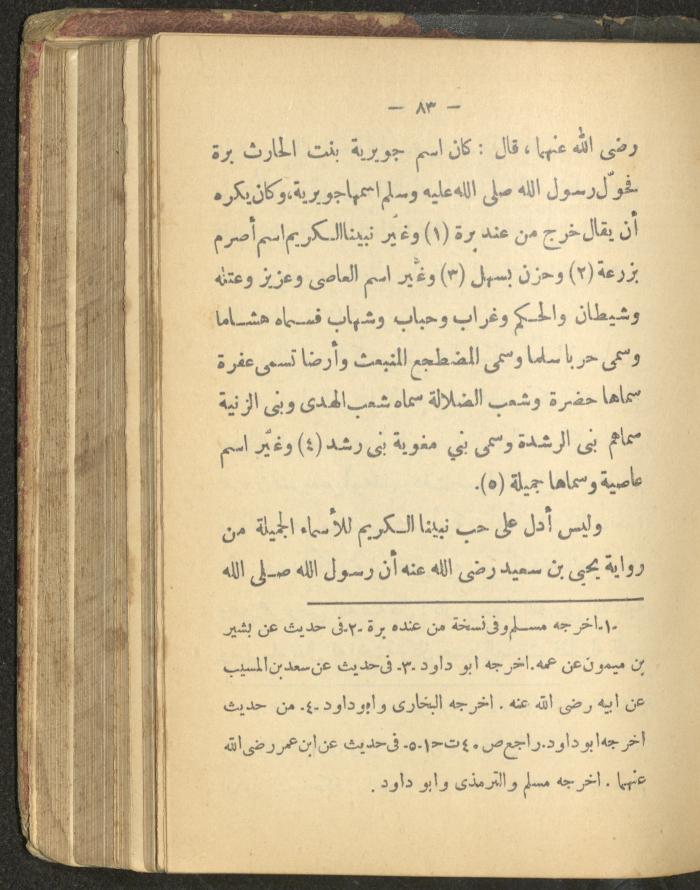 — ٨٣ —
رضى الله عنهما، قال : كان اسم جويرية بنت الحارث برة
فحوّل رسول الله صلى الله عليه وسلم اسمها جويرية، وكان يكره
أن يقال خرج من عند برة (١) وغيّر نبينا الكريم اسم أصرم
بزرعة (٢) وحزن بسهل (٣) وغيّر اسم العاصى وعزيز وعتله
وشيطان والحكم وغراب وحباب وشهاب فسماه هشاما
وسمى حربا سلما وسمى المضطجع المنبعث وأرضا تسمى عفرة
سماها حضرة وشعب الضلالة سماه شعب الهدى وبنى الزنية
سماهم بنى الرشدة وسمى بني مغوية بنى رشد (٤) وغيّر اسم
عاصية وسماها جميلة (٥).
وليس أدل على حب نبينا الكريم للأسماء الجميلة من
رواية يحيى بن سعيد رضى الله عنه أن رسول الله صلى الله
-١- اخرجه مسلم وفى نسخة من عنده برة -٢- فى حديث عن بشير
بن ميمون عن عمه. اخرجه ابو داود -٣- فى حديث عن سعد بن المسيب
عن ابيه رضى الله عنه . اخرجه البخارى وابو داود -٤- من حديث
اخرجه ابو داود. راجع ص ٤٠ ت ح١ -٥- فى حديث عن ابن عمر رضى الله
عنهما . اخرجه مسلم والترمذى وابو داود .